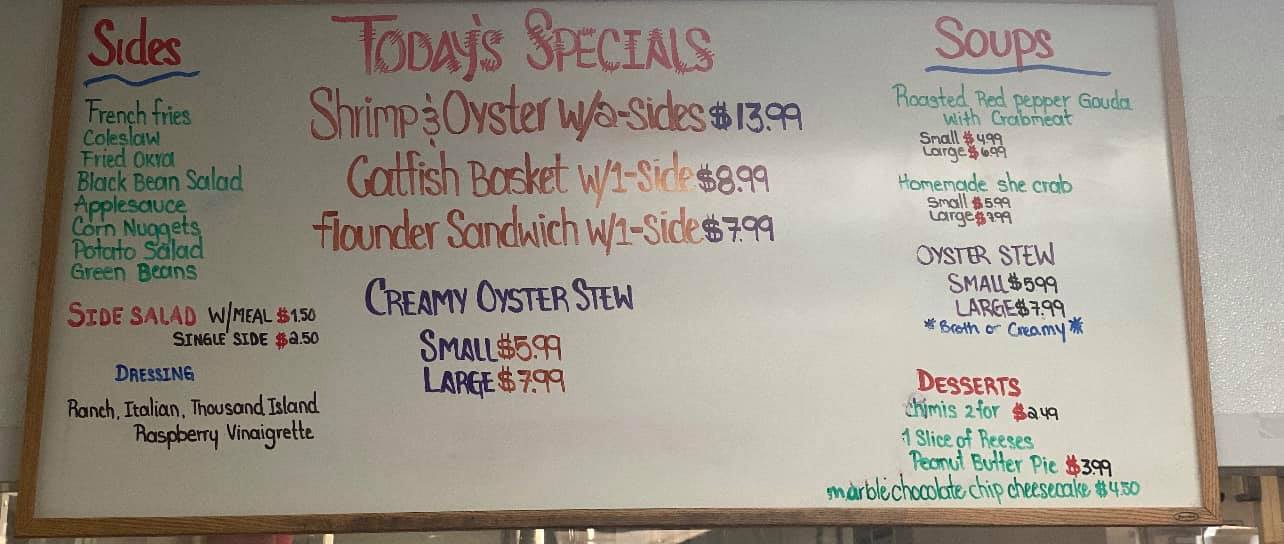 Sides
French fries
Coleslaw
Fried Okra
Black Bean Salad
Applesauce
Corn Nuggets
Potato Salad
Green Beans
SIDE SALAD W/MEAL $1.50
SINGLE SIDE $2.50
DRESSING
Ranch, Italian, Thousand Island
Raspberry Vinaigrette
TODAY'S SPECIALS
Shrimp & Oyster w/2-sides $13.99
Catfish Basket w/1-side $8.99
flounder Sandwich w/1-side $7.99
CREAMY OYSTER STEW
SMALL $5.99
LARGE $7.99
Soups
Roasted Red pepper Gouda
with Crabmeat
Small $4.99
Large $6.99
Homemade she crab
Small $5.99
Large $7.99
OYSTER STEW
SMALL $5.99
LARGE $7.99
*Broth or Creamy*
DESSERTS
chimis 2 for $2.49
1 Slice of Reeses
Peanut Butter Pie $3.99
marble chocolate chip cheesecake $4.50